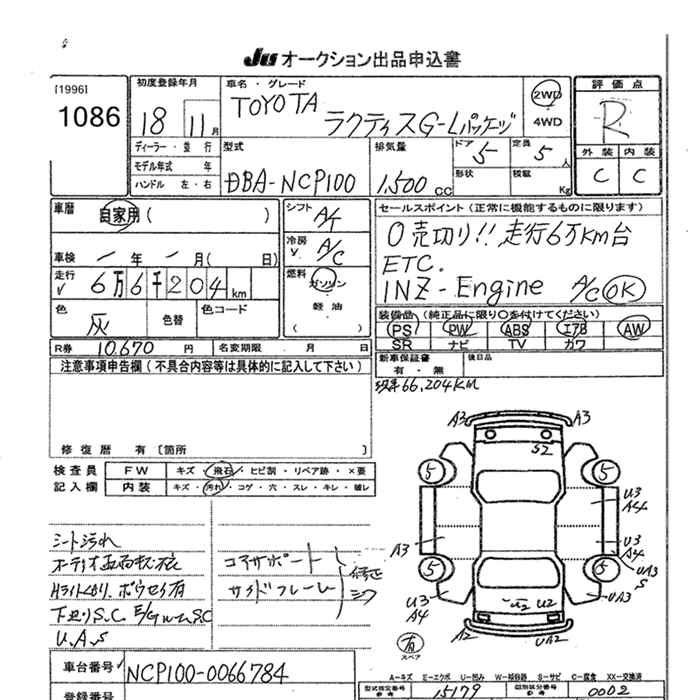 JU オークション出品申込書
[1996]
1086
初度登録年月
18 11月
車名・グレード
TOYOTA
ラクティスG-Lパッケージ
2WD
4WD
評価点
R
外装 内装
C C
ディーラー・並行
モデル年式 年
ハンドル 左・右
型式
DBA-NCP100
排気量
1,500 CC
ドア 5
定員 5人
形状
積載 Kg
車歴 自家用( )
車検 - 年 - 月( 日)
走行 6万6千204km
色 灰
色替
色コード
シフト A4
冷房 A/C
燃料 ガソリン
軽油
( )
セールスポイント(正常に機能するものに限ります)
0売切り!! 走行6万km台
ETC.
1NZ-Engine A/C OK
装備品(純正品に限り○を付けてください)
PS PW ABS エアB AW
SR ナビ TV カワ
新車保証書
有・無
後日品
66,204KM
R券 10,670 円 名変期限 月 日
注意事項申告欄(不具合内容等は具体的に記入して下さい)
修復歴 有[箇所 ]
検査員 FW キズ・飛石・ヒビ割・リペア跡・×要
記入欄 内装 キズ・汚れ・コゲ・穴・スレ・キレ・破レ
シート汚れ
下廻りS.C
U.A.S
コアサポート
サイドフレーム
修正
A3 A3
S2
5 5
U3
A4
A3
U3
A4
UA3
S
5 5
U3
A4
UA3
U2 U2
A2 UA2
有
スペア
A-キズ E-エクボ U-凹み W-補修跡 S-サビ C-腐食 XX-交換済
車台番号 NCP100-0066784
登録番号
型式指定番号 15179
類別区分番号 0002